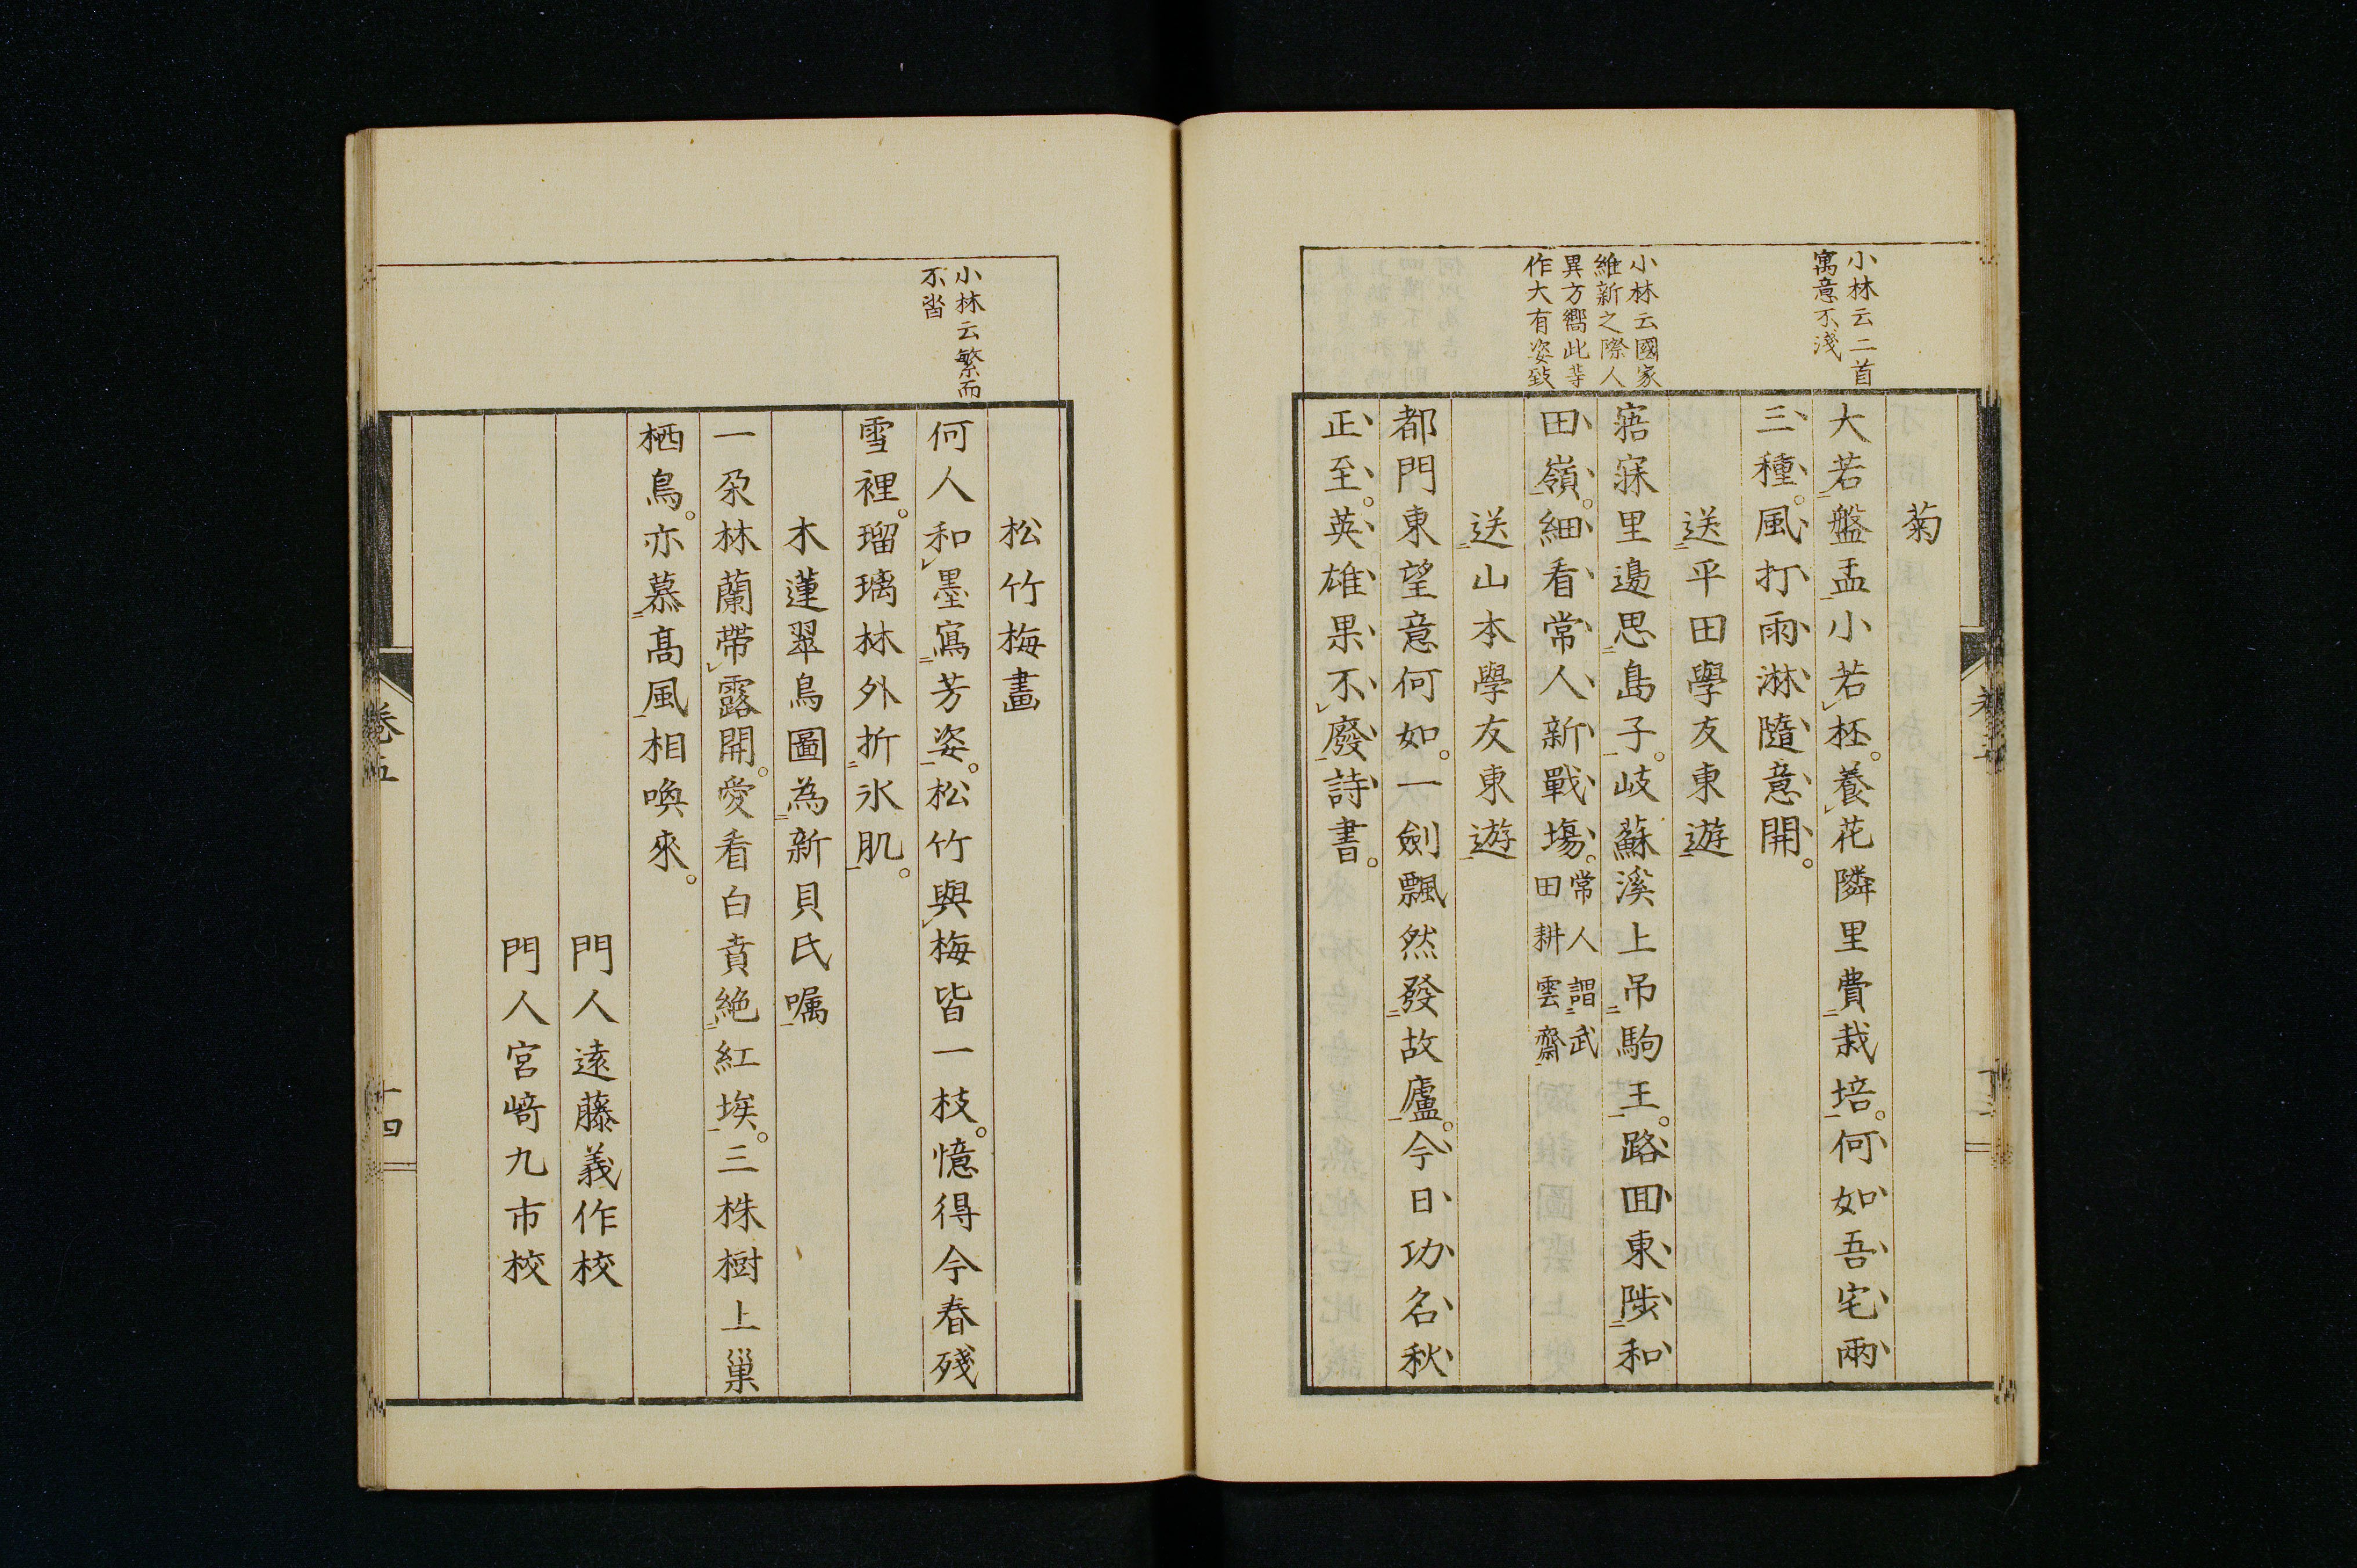 小林云二首
寓意不淺
小林云國家
維新之際人
異方嚮此等
作大有姿致
菊
大若盤盂小若柸。養花隣里費栽培。何如吾宅兩
三種。風打雨淋隨意開。
送平田學友東遊
寤寐里邊思島子。岐蘇溪上吊駒王。路囬東陟和
田嶺。細看常人新戰塲。常人謂武
田耕雲齋
送山本學友東遊
都門東望意何如。一劍飄然發故廬。今日功名秋
正至。英雄果不廢詩書。
小林云繁而
不沓
松竹梅畫
何人和墨寫芳姿。松竹與梅皆一枝。憶得今春殘
雪裡。瑠璃林外折氷肌。
木蓮翠鳥圖為新貝氏嘱
一朶林蘭帶露開。愛看白賁絶紅埃。三株樹上巢
栖鳥。亦慕髙風相喚來。
門人遠藤義作校
門人宮﨑九市校
卷五
十四